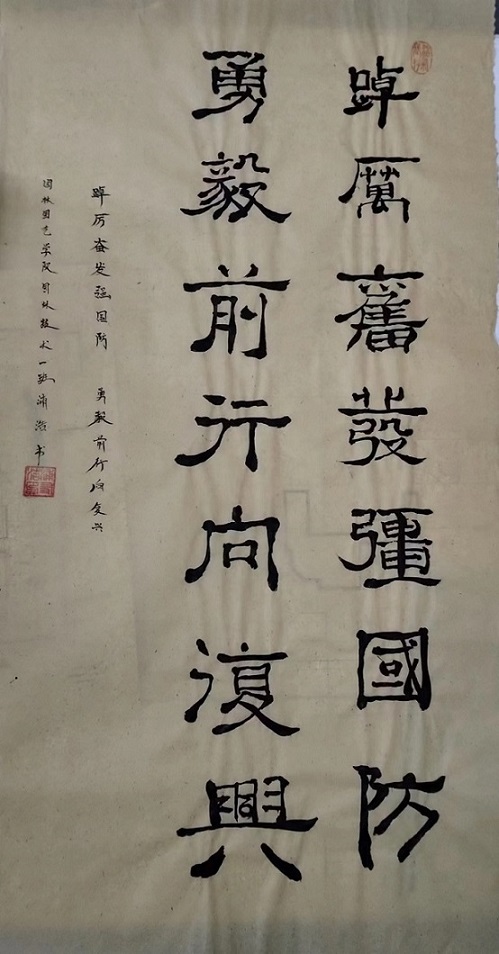 踔厲奮發彊國防
勇毅前行向復興
踔厉奋发强国防 勇毅前行向复兴
园林园艺学院园林技术一班 浦滢书